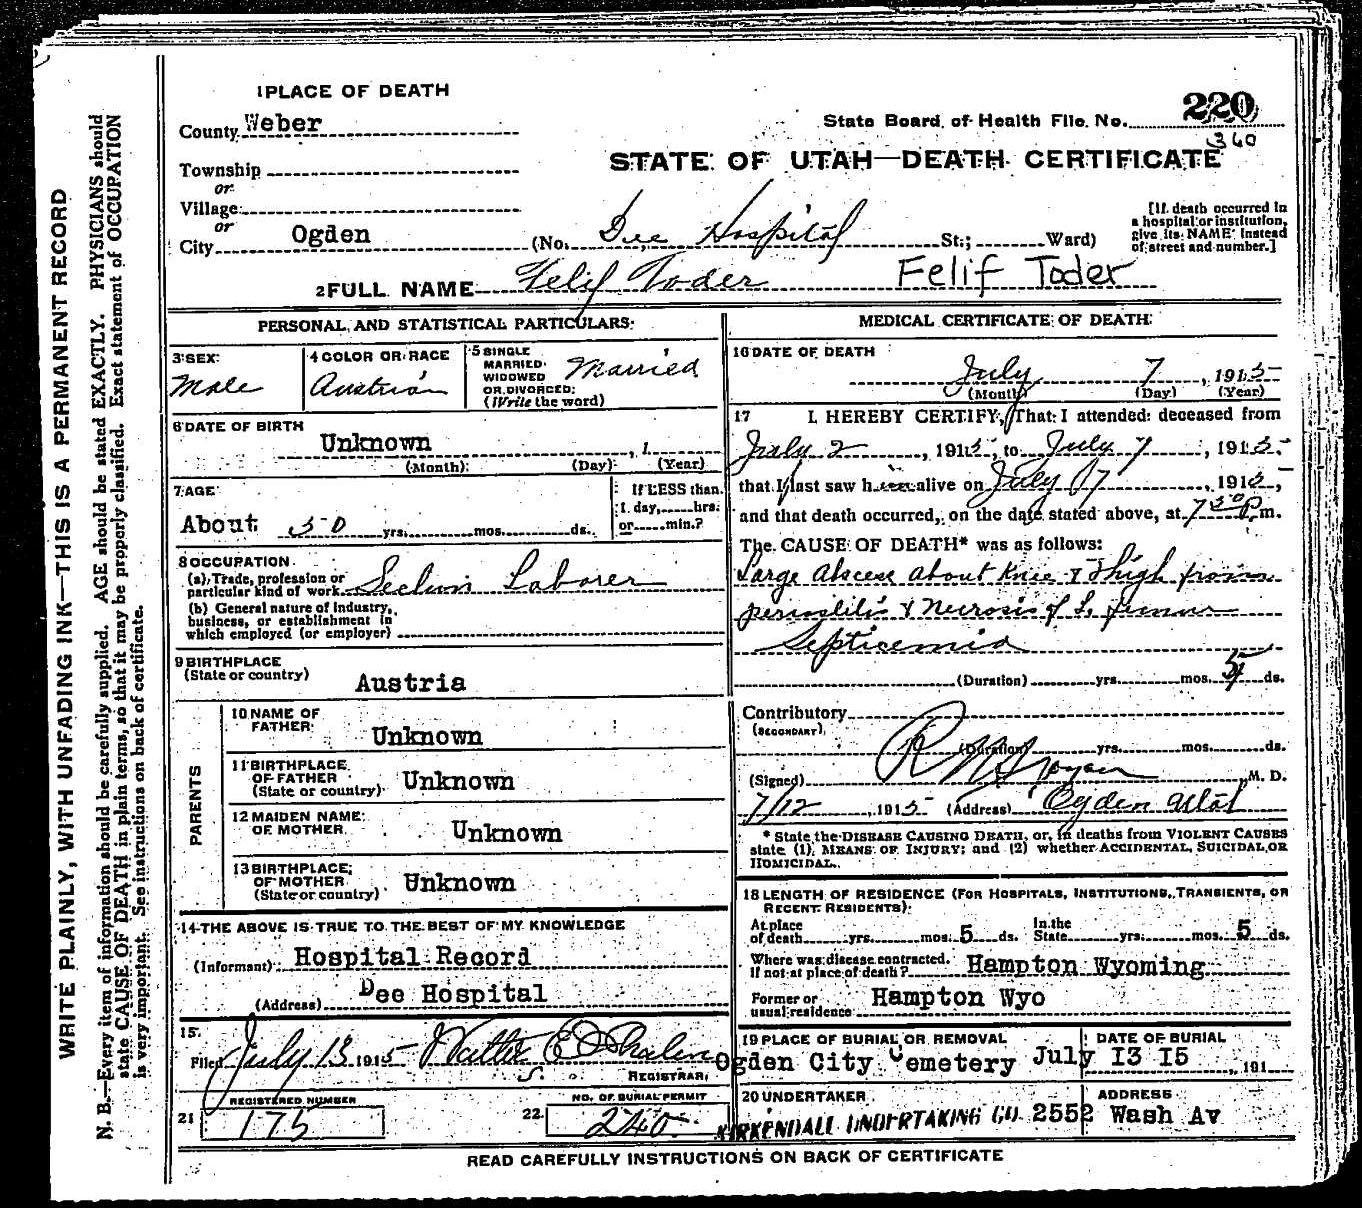 WRITE PLAINLY, WITH UNFADING INK—THIS IS A PERMANENT RECORD
N. B.—Every item of information should be carefully supplied. AGE should be stated EXACTLY. PHYSICIANS should
state CAUSE OF DEATH in plain terms, so that it may be properly classified. Exact statement of OCCUPATION
is very important. See instructions on back of certificate.
1 PLACE OF DEATH
County Weber
State Board of Health File No. 220
360
Township
or
Village
or
City Ogden
STATE OF UTAH—DEATH CERTIFICATE
(No. Dee Hospital St.; Ward)
[If death occurred in
a hospital or institution,
give its NAME instead
of street and number.]
2 FULL NAME Felif Toder Felif Toder
PERSONAL AND STATISTICAL PARTICULARS
3 SEX
Male
4 COLOR OR RACE
Austrian
5 SINGLE
MARRIED
WIDOWED
OR DIVORCED
(Write the word)
Married
6 DATE OF BIRTH
Unknown , 1
(Month) (Day) (Year)
7 AGE
About 50 yrs. mos. ds.
If LESS than
1 day, hrs.
or min.?
8 OCCUPATION
(a) Trade, profession or
particular kind of work Section Laborer
(b) General nature of industry,
business, or establishment in
which employed (or employer)
9 BIRTHPLACE
(State or country)
Austria
PARENTS
10 NAME OF
FATHER
Unknown
11 BIRTHPLACE
OF FATHER
(State or country)
Unknown
12 MAIDEN NAME
OF MOTHER
Unknown
13 BIRTHPLACE
OF MOTHER
(State or country)
Unknown
14 THE ABOVE IS TRUE TO THE BEST OF MY KNOWLEDGE
(Informant) Hospital Record
(Address) Dee Hospital
15
Filed July 13 1915 Walter E Whalen
REGISTRAR
21
REGISTERED NUMBER
175
22
NO. OF BURIAL PERMIT
240
MEDICAL CERTIFICATE OF DEATH
16 DATE OF DEATH
July 7, 1915
(Month) (Day) (Year)
17 I HEREBY CERTIFY, That I attended deceased from
July 2, 1915, to July 7, 1915,
that I last saw him alive on July 7, 1915,
and that death occurred, on the date stated above, at 7 30 P m.
The CAUSE OF DEATH* was as follows:
Large Abscess about Knee & Thigh from
periostitis & Necrosis of L. Femur
Septicemia
(Duration) yrs. mos. 5 ds.
Contributory
(SECONDARY)
(Duration) yrs. mos. ds.
(Signed) M. D.
7/12, 1915 (Address) Ogden Utah
* State the DISEASE CAUSING DEATH, or, in deaths from VIOLENT CAUSES
state (1) MEANS OF INJURY; and (2) whether ACCIDENTAL, SUICIDAL OR
HOMICIDAL.
18 LENGTH OF RESIDENCE (FOR HOSPITALS, INSTITUTIONS, TRANSIENTS, OR
RECENT RESIDENTS)
At place
of death yrs. mos. 5 ds.
In the
State yrs. mos. 5 ds.
Where was disease contracted,
if not at place of death? Hampton Wyoming
Former or
usual residence Hampton Wyo
19 PLACE OF BURIAL OR REMOVAL
Ogden City Cemetery
DATE OF BURIAL
July 13 15, 191
20 UNDERTAKER
KIRKENDALL UNDERTAKING CO.
ADDRESS
2552 Wash Av
READ CAREFULLY INSTRUCTIONS ON BACK OF CERTIFICATE